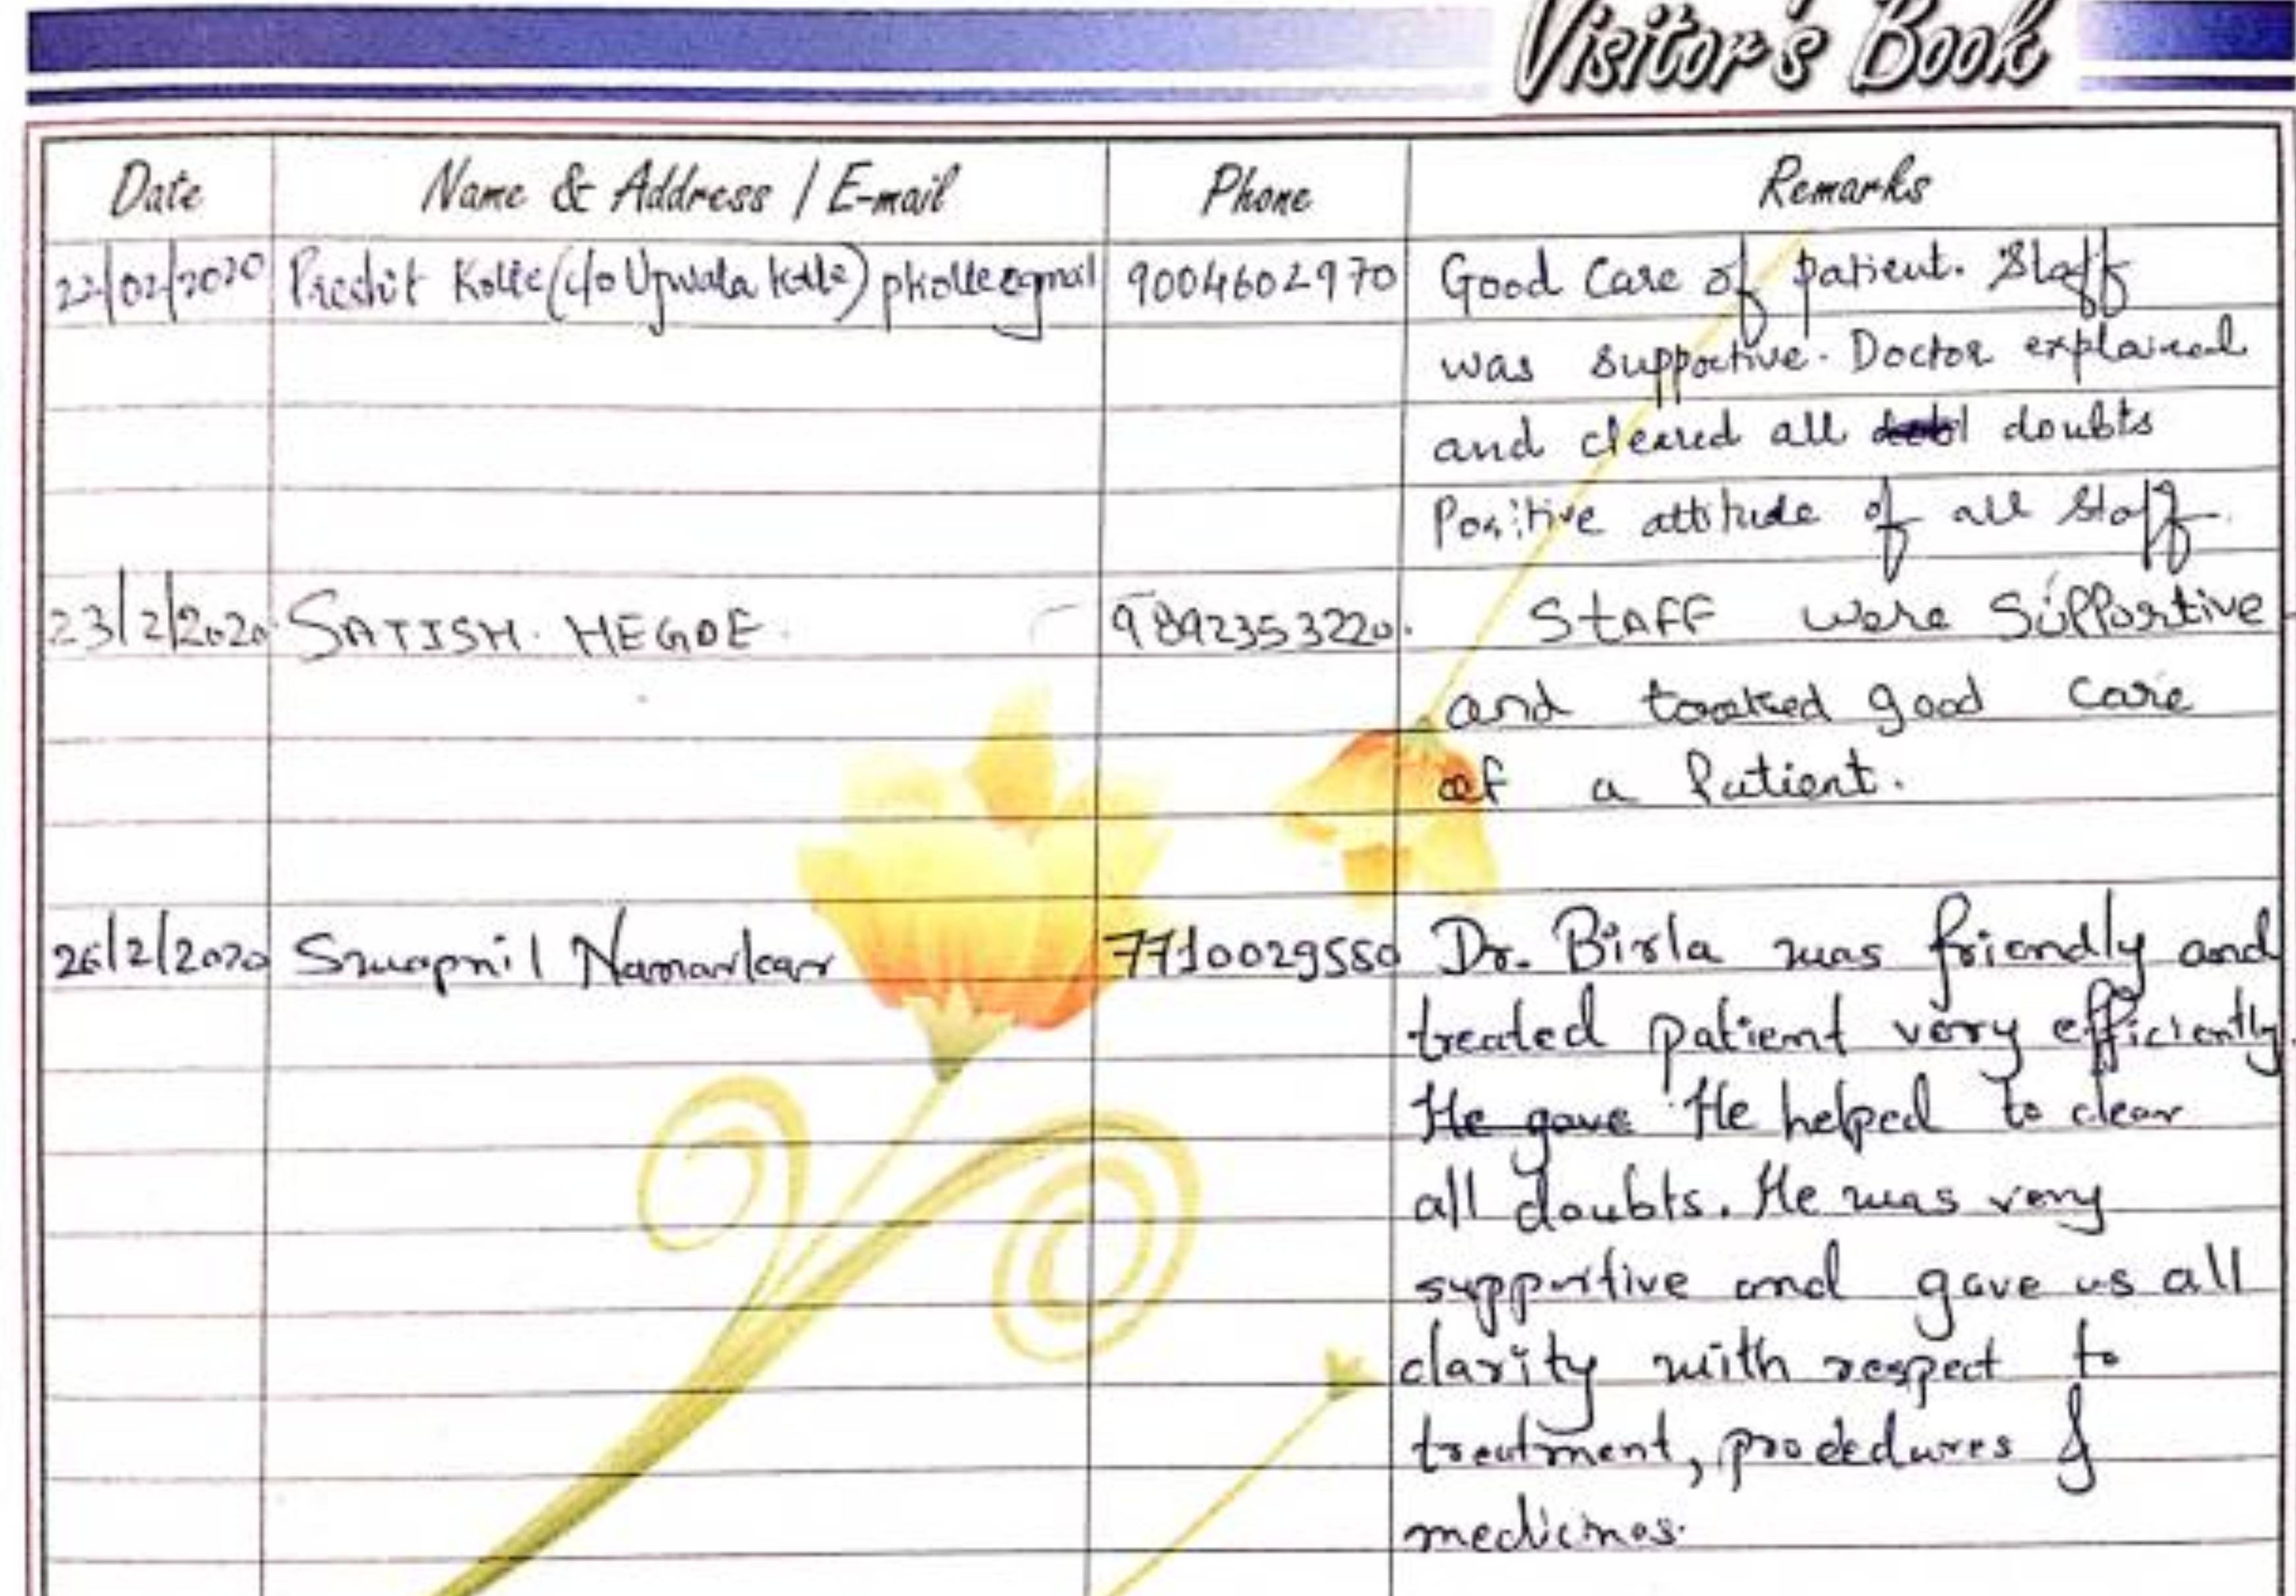 Visitor's Book
Date Name & Address / E-mail Phone Remarks
22/02/2020 Preshit Kolte (c/o Ujwala Kolte) pkolte@gmail 9004602970 Good Care of patient. Staff
was supportive. Doctor explained
and cleared all doubts
Positive attitude of all staff.
23/2/2020 SATISH. HEGDE. 9892353220. STAFF were Supportive
and tooked good care
of a Patient.
26/2/2020 Swapnil Namarkar 7710029550 Dr. Birla was friendly and
treated patient very efficiently.
He gave He helped to clear
all doubts. He was very
supportive and gave us all
clarity with respect to
treatment, procedures &
medicines.